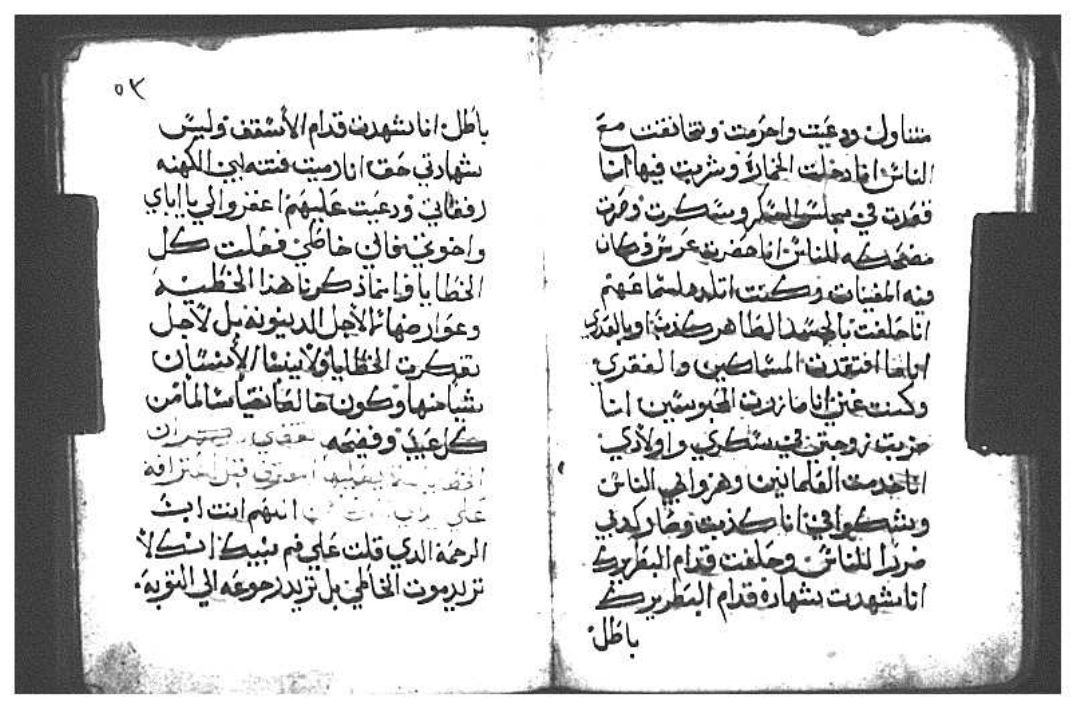 متناول ودعيت واحرمت وتخانقت مع
الناس انا دخلت الخمارة وشربت فيها انا
قعدت في مجلس السكر وسكرت وصرت
مضحكه للناس انا حضرت عرس وكان
فيه المغنيات وكنت اتلدد لسماعهم
انا حلفت بالجسد الطاهر كذبا وبالقدس
انا ما افتقدت المساكين والفقرى
وكنت غني انا ما زرت المحبوسين انا
ضربت زوجتي في سكري واولادي
انا خدمت العلمانيين وهزوا بي الناس
وبشكوا في انا كذبت وصار كدبي
ضررا للناس وحلفت قدام البطريرك
انا شهدت شهاده قدام البطريرك
باطل
٥٣
باطل انا شهدت قدام الأسقف وليس
شهادتي حق انا رميت فتنه بين الكهنه
رفقاتي ودعيت عليهم اغفروا لي يا اباي
واخوتي فاني خاطي فعلت كل
الخطايا وانما ذكرنا هذا الخطيه
وعوارضها لا لاجل الدينونه بل لاجل
تفكرت الخطايا ولا ينسا الانسان
شيا منها وكون خالعا نقيا سالما من
كل عيب وفضيحه
على انت اللهم انت اب
الرحمة الدي قلت على فم نبيك انك لا
تريد موت الخاطي بل تريد رجوعه الى التوبه.